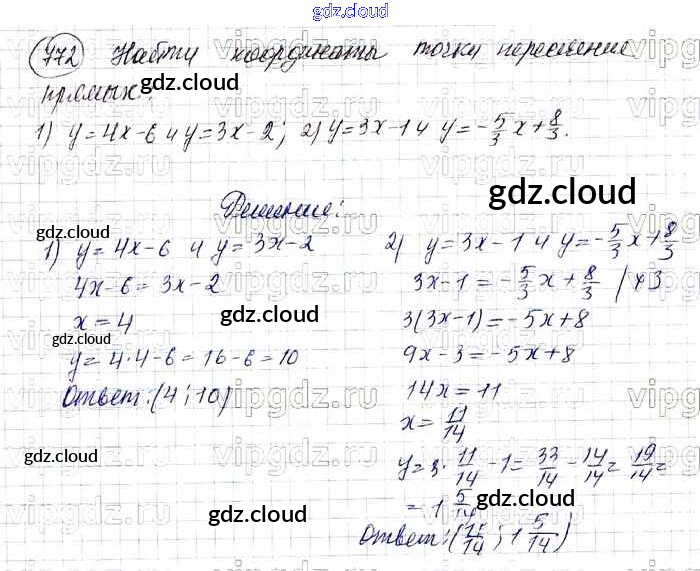 gdz.cloud
772 Найти координаты точки пересечение
прямых.
1) y=4x-6 и y=3x-2; 2) y=3x-1 и y=-5/3x+8/3.
Решение:
1) y=4x-6 и y=3x-2
4x-6=3x-2
x=4
y=4·4-6=16-6=10
Ответ: (4; 10)
2) y=3x-1 и y=-5/3x+8/3
3x-1=-5/3x+8/3 /×3
3(3x-1)=-5x+8
9x-3=-5x+8
14x=11
x=11/14
y=3·11/14-1=33/14-14/14=19/14=
=1 5/14
Ответ: (11/14; 1 5/14)
gdz.cloud
gdz.cloud
gdz.cloud
gdz.cloud
gdz.cloud
gdz.cloud
gdz.cloud
gdz.cloud
gdz.cloud
gdz.cloud
vipgdz.ru
vipgdz.ru
vipgdz.ru
vipgdz.ru